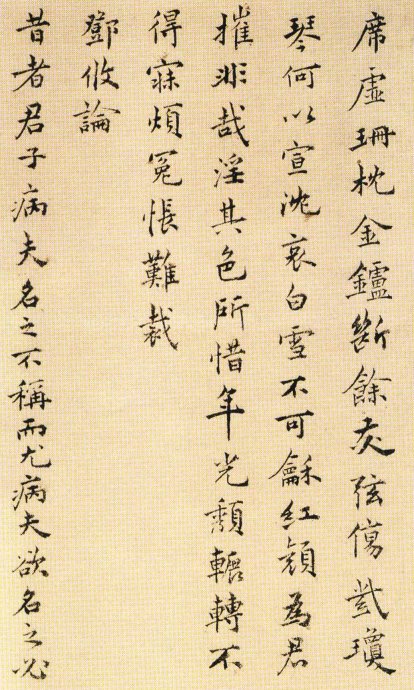 席虛珊枕金鑪斷餘灰弦傷貳瓊
琴何以宣沈哀白雪不可龢紅顏為君
摧非哉淫其色所惜年光頹轆轉不
得寐煩冤悵難裁
鄧攸論
昔者君子病夫名之不稱而尤病夫欲名之必